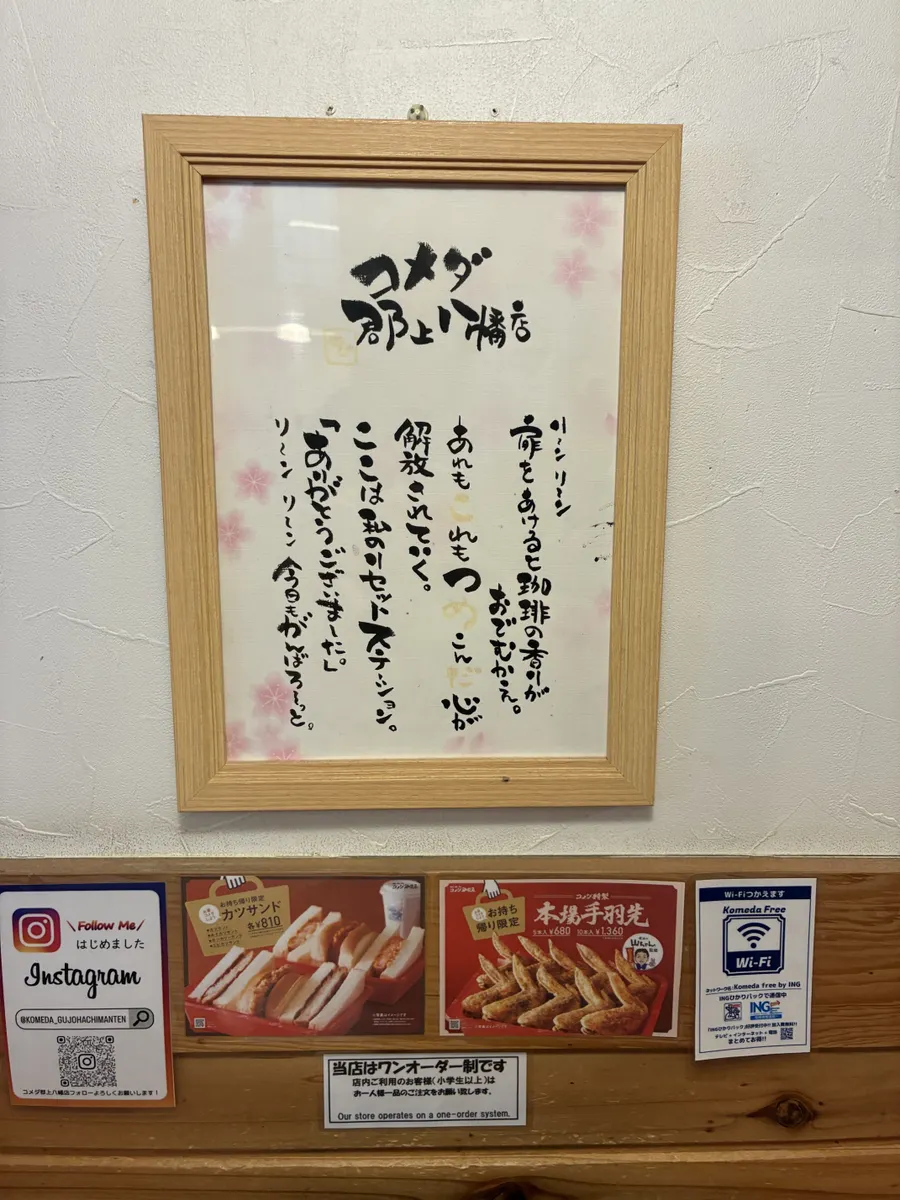 コメダ
郡上八幡店
リ〜ン リ〜ン
扉をあけると珈琲の香りが
おでむかえ。
あれもこれもつめこんだ心が
解放されていく。
ここは私のリセットステーション。
「ありがとうございました。」
リ〜ン リ〜ン 今日もがんばろーっと。
\Follow Me/
はじめました
Instagram
@KOMEDA_GUJOHACHIMANTEN
コメダ郡上八幡店フォローよろしくお願いします!
お持ち帰り限定
カツサンド
各¥810
コメダ特製
お持ち帰り限定
本場手羽先
5本入¥680 10本入¥1,360
Wi-Fiつかえます
Komeda Free
Wi-Fi
ネットワーク名:Komeda free by ING
INGひかりパックで通信中
ING
テレビ+インターネット+電話
まとめてお得!!
当店はワンオーダー制です
店内ご利用のお客様(小学生以上)は
お一人様一品のご注文をお願い致します。
Our store operates on a one-order system.